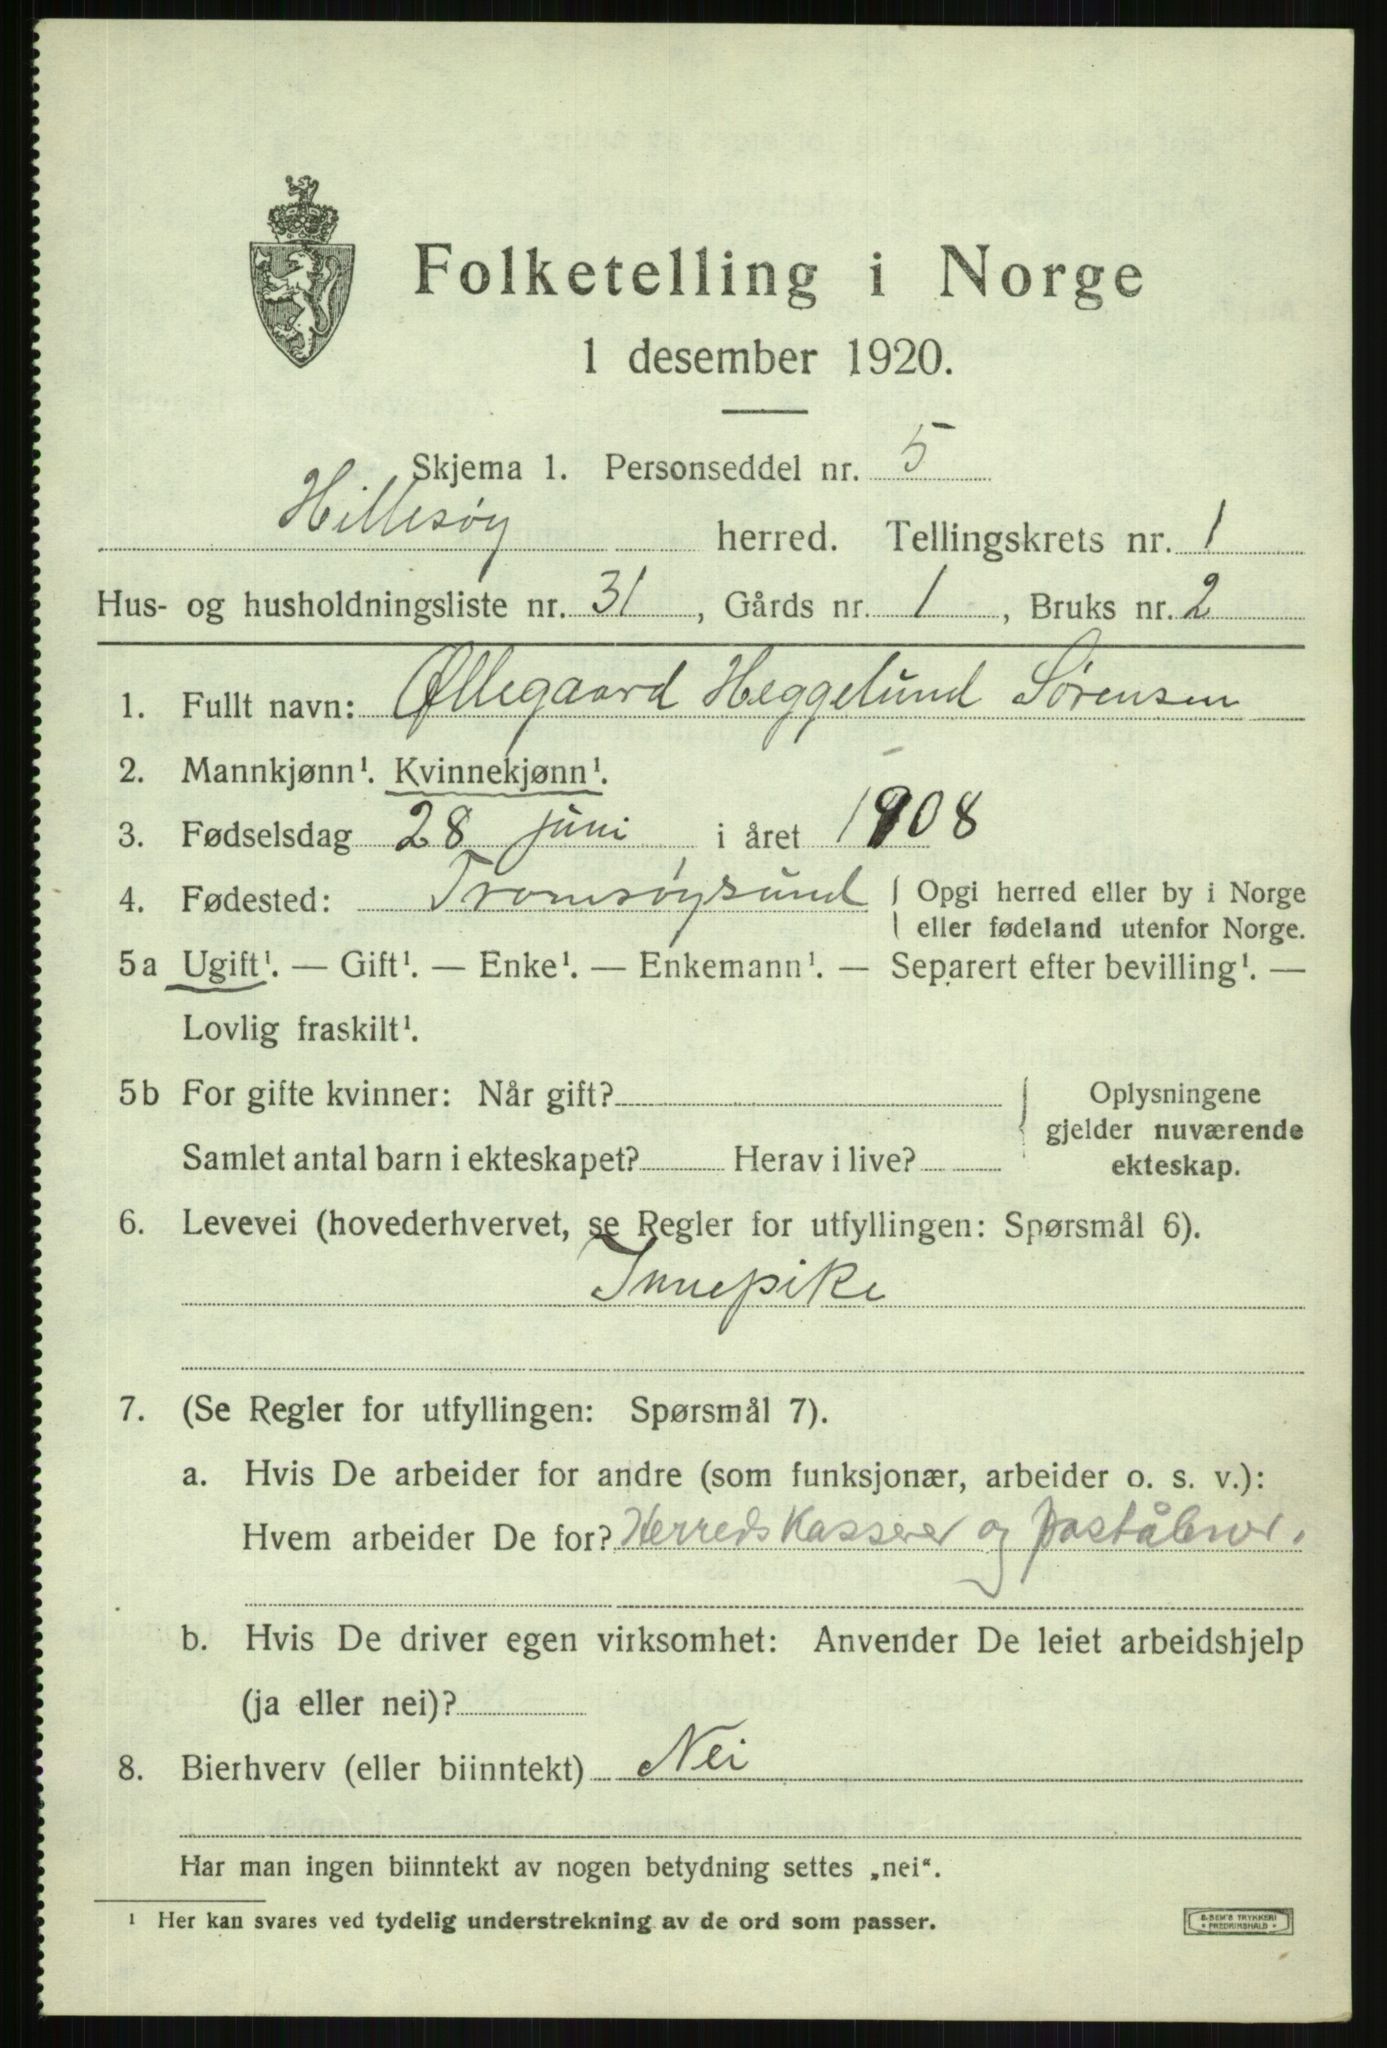 Folketelling i Norge
1 desember 1920.
Skjema 1. Personseddel nr. 5
Hillesøy herred. Tellingskrets nr. 1
Hus- og husholdningsliste nr. 31, Gårds nr. 1, Bruks nr. 2
1. Fullt navn: Øllegaard Heggelund Sørensen
2. Mannkjønn¹. Kvinnekjønn¹.
3. Fødselsdag 28 juni i året 1908
4. Fødested: Tromsøysund { Opgi herred eller by i Norge
eller fødeland utenfor Norge.
5a Ugift¹. — Gift¹. — Enke¹. — Enkemann¹. — Separert efter bevilling¹. —
Lovlig fraskilt¹.
5b For gifte kvinner: Når gift? { Oplysningene
gjelder nuværende
Samlet antal barn i ekteskapet? Herav i live? ekteskap.
6. Levevei (hovederhvervet, se Regler for utfyllingen: Spørsmål 6).
Innepike
7. (Se Regler for utfyllingen: Spørsmål 7).
a. Hvis De arbeider for andre (som funksjonær, arbeider o. s. v.):
Hvem arbeider De for? Herredskasserer og poståbner.
b. Hvis De driver egen virksomhet: Anvender De leiet arbeidshjelp
(ja eller nei)?
8. Bierhverv (eller biinntekt) Nei
Har man ingen biinntekt av nogen betydning settes „nei“.
¹ Her kan svares ved tydelig understrekning av de ord som passer.
E. SEM'S TRYKKERI
FREDRIKSHALD